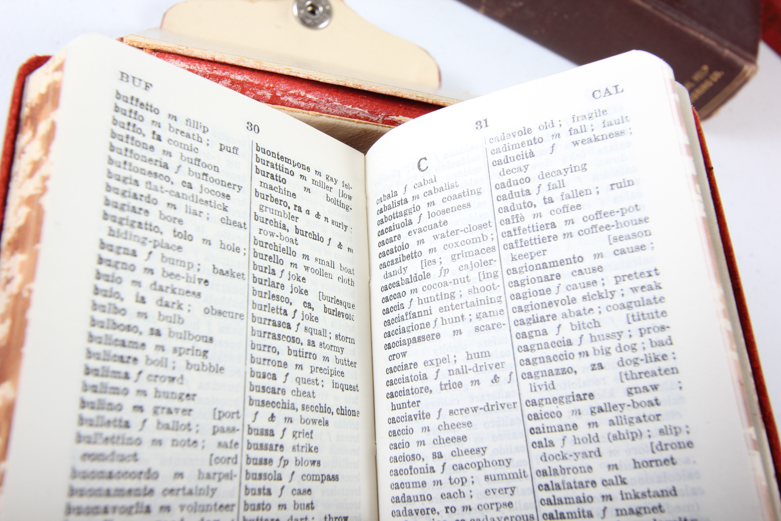 BUF
30
buffetto m fillip
buffo m breath; puff
buffo, fa comic
buffone m buffoon
buffoneria f buffoonery
buffonesco, ca jocose
bugia flat-candlestick
bugiardo m liar; cheat
bugiare bore
bugigatto, tolo m hole;
hiding-place
bugna f bump; basket
bugno m bee-hive
buio m darkness
buio, ia dark; obscure
bulbo m bulb
bulboso, sa bulbous
bulicame m spring
bulicare boil; bubble
bulima f crowd
bulimo m hunger
bulino m graver [port
bulletta f ballot; pass-
bullettino m note; safe
conduct [cord
buonaccordo m harpsi-
buonamente certainly
buonavoglia m volunteer
buontempone m gay fel-
burattino m miller [low
buratto m bolting-
machine
burbero, ra a & n surly;
grumbler
burchia, burchio f & m
row-boat
burchiello m small boat
burello m woollen cloth
burla f joke
burlare joke [burlesque
burlesco, ca, burlevole
burletta f joke
burrasca f squall; storm
burrascoso, sa stormy
burro, butirro m butter
burrone m precipice
busca f quest; inquest
buscare cheat
busecchia, secchio, chione
f & m bowels
bussa f grief
bussare strike
busse fp blows
bussola f compass
busta f case
busto m bust
31
CAL
C
cabala f cabal
cabalista m cabalist
cabottaggio m coasting
cacaiuola f looseness
cacare evacuate
cacatoio m water-closet
cacazibetto m coxcomb;
dandy [ies; grimaces
caccabaldole fp cajoler-
caccao m cocoa-nut [ing
caccia f hunting; shoot-
cacciaffanni entertaining
cacciagione f hunt; game
cacciapassere m scare-
crow
cacciare expel; hum
cacciatoia f nail-driver
cacciatore, trice m & f
hunter
cacciavite f screw-driver
caccio m cheese
cacio m cheese
cacioso, sa cheesy
cacofonia f cacophony
cacume m top; summit
cadauno each; every
cadavere, ro m corpse
cadavole old; fragile
cadimento m fall; fault
caducità f weakness;
decay
caduco decaying
caduta f fall
caduto, ta fallen; ruin
caffè m coffee
caffettiera m coffee-pot
caffettiere m coffee-house
keeper [season
cagionamento m cause;
cagionare cause
cagione f cause; pretext
cagionevole sickly; weak
cagliare abate; coagulate
cagna f bitch [titute
cagnaccia f hussy; pros-
cagnaccio m big dog; bad
cagnazzo, za dog-like;
livid [threaten
cagneggiare gnaw;
caicco m galley-boat
caimane m alligator
cala f hold (ship); slip;
dock-yard [drone
calabrone m hornet
calafatare calk
calamaio m inkstand
calamita f magnet